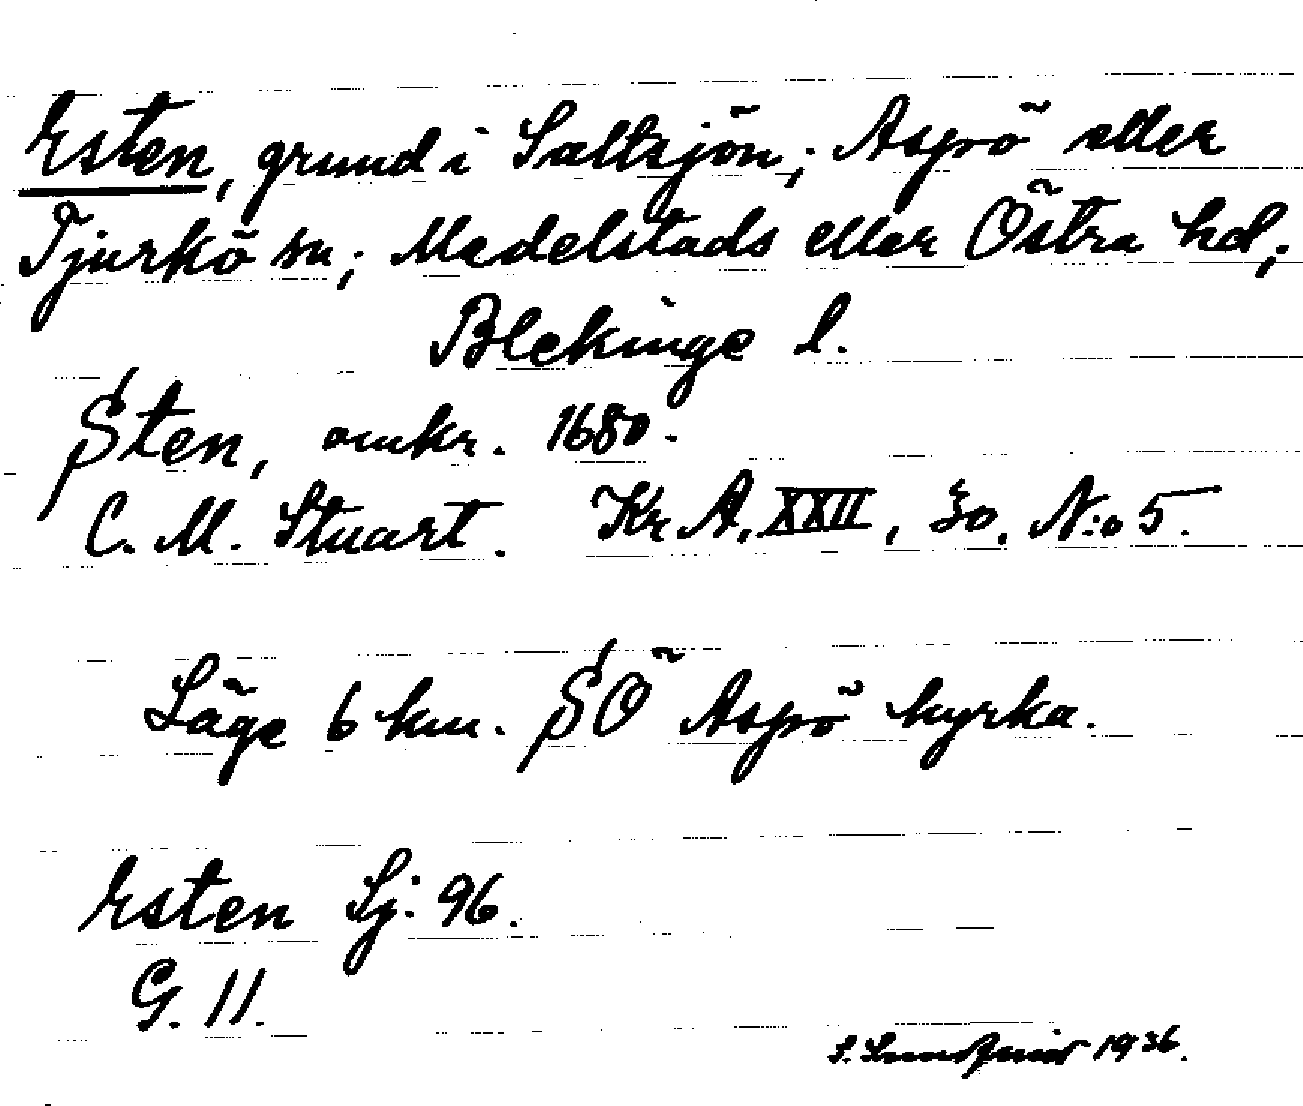 Esten, grund i Saltsjön; Aspö eller
Tjurkö sn; Medelstads eller Östra hd;
Blekinge l.
Sten, omkr. 1680.
C. M. Stuart. Kr A, XXII, 30. N:o 5.
Läge 6 km. SÖ Aspö kyrka.
Esten Sj: 96.
G. 11.
S. 1936.